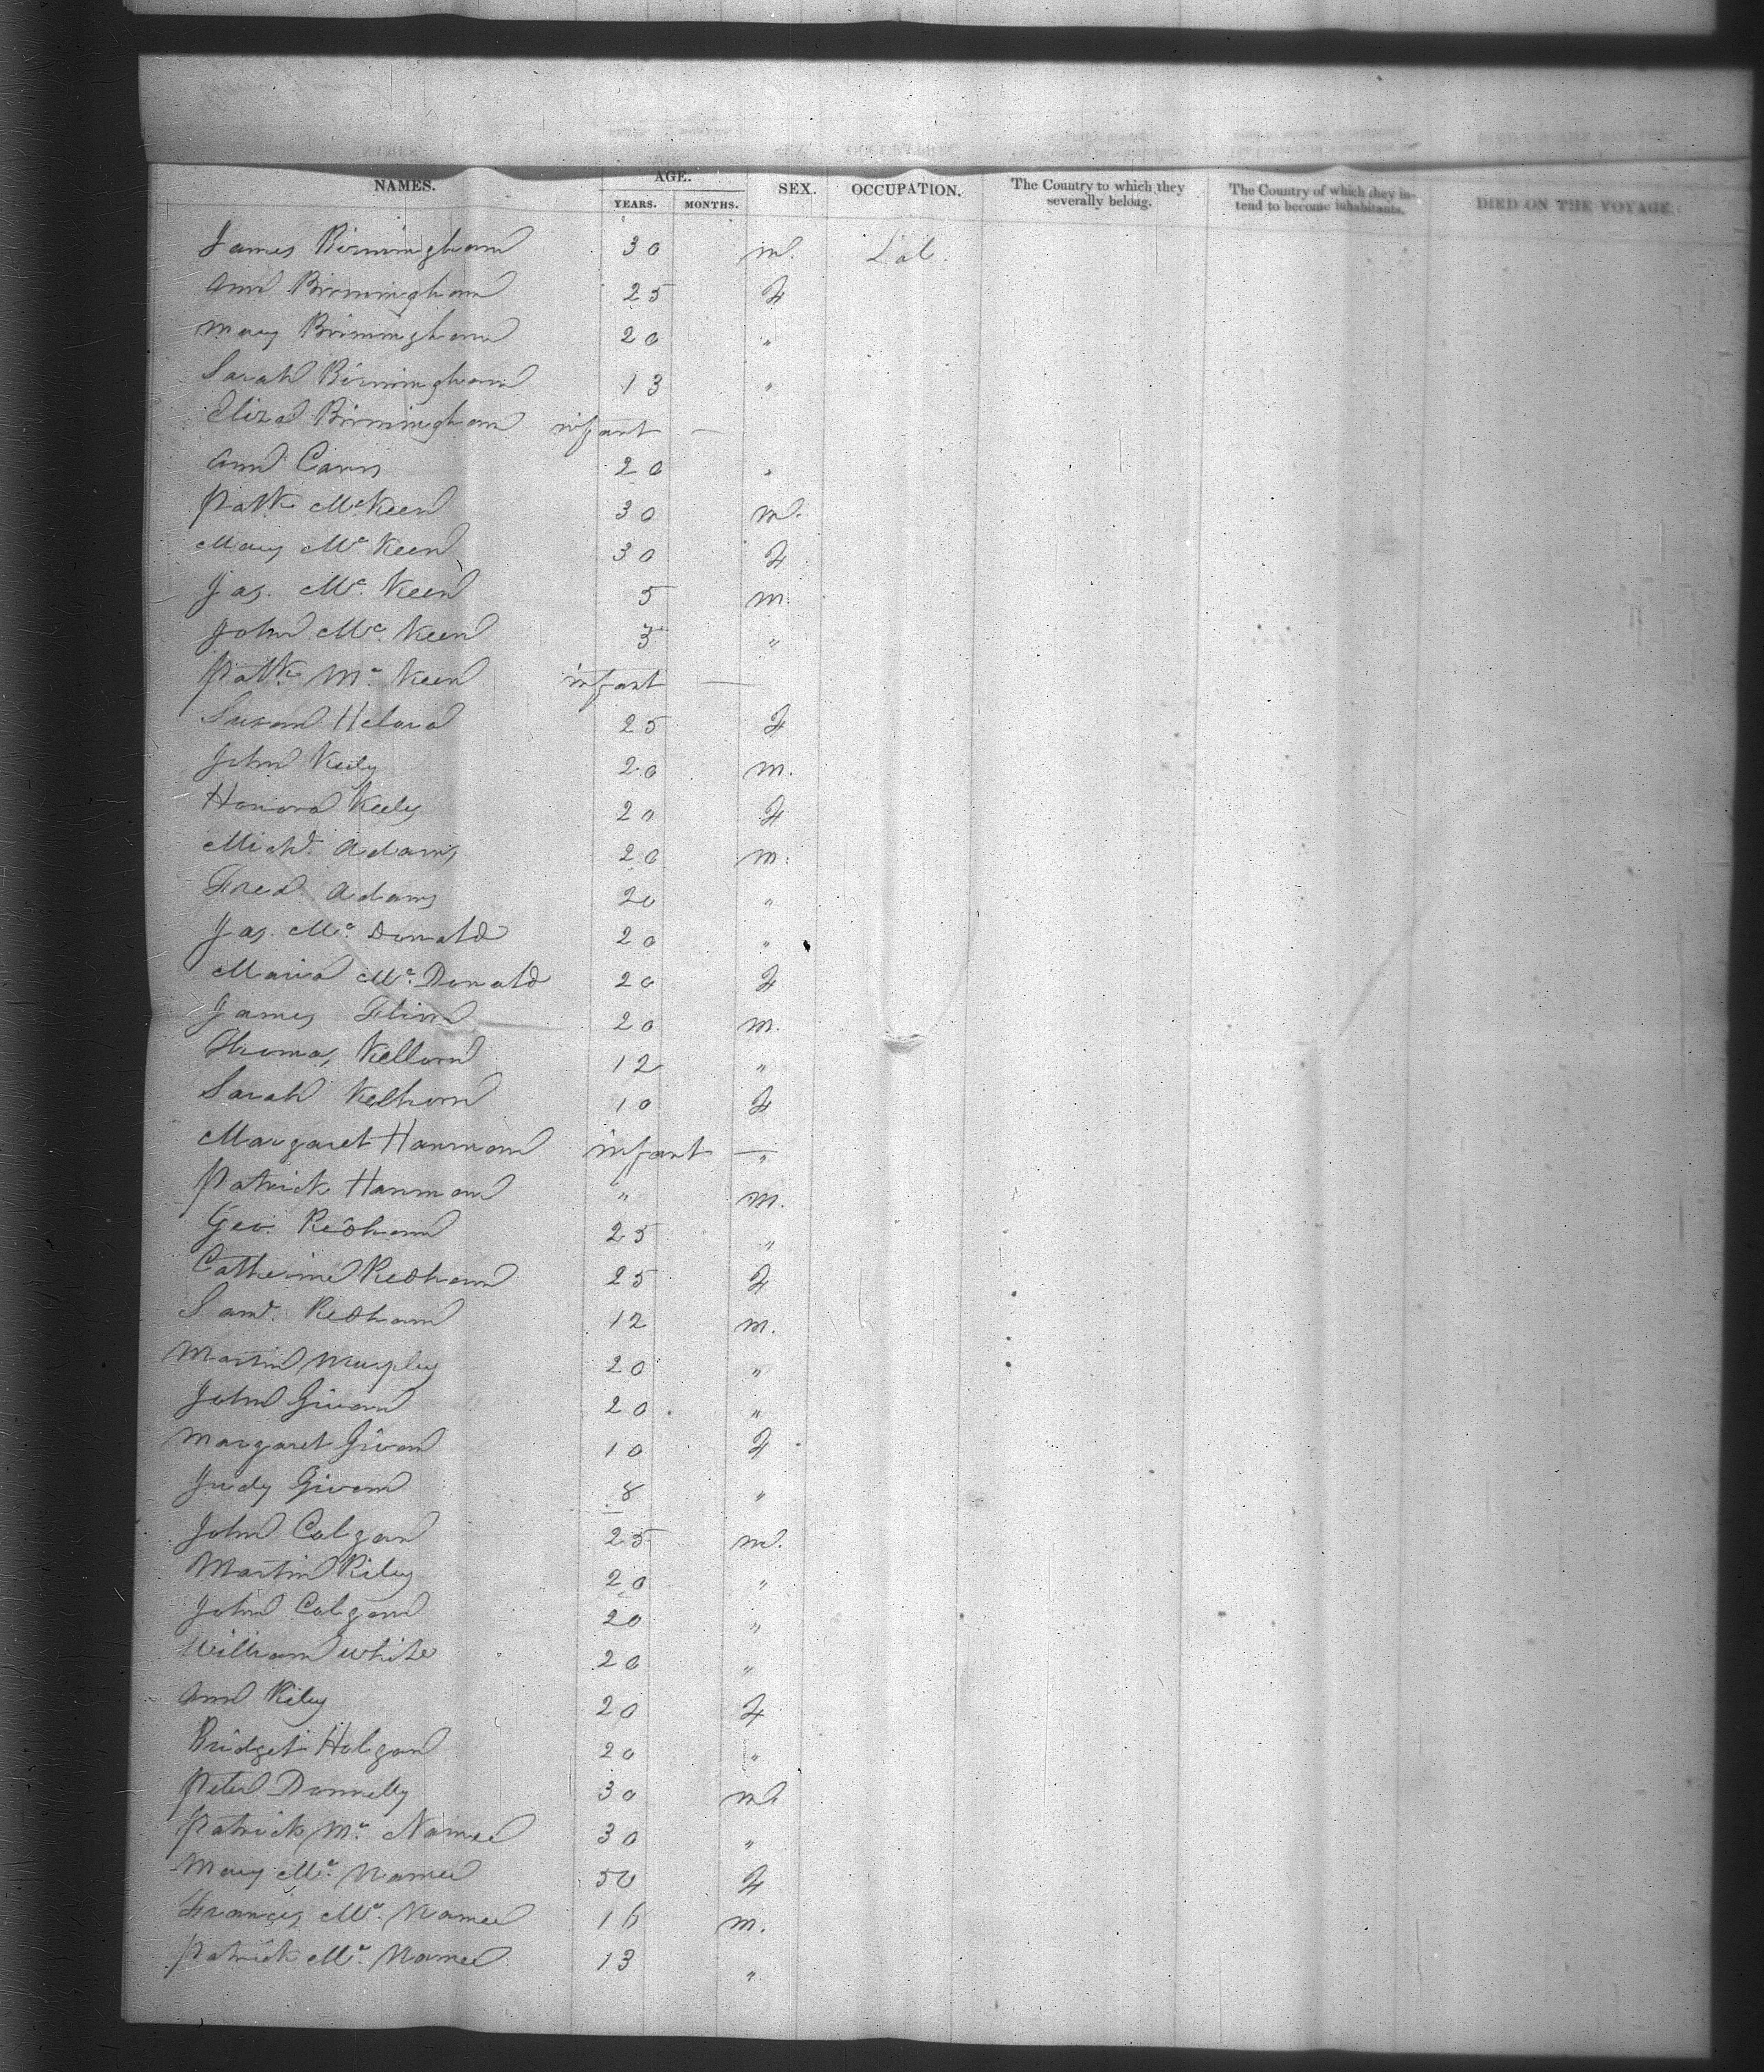 NAMES. AGE. YEARS. MONTHS. SEX. OCCUPATION. The Country to which they severally belong. The Country of which they intend to become inhabitants. DIED ON THE VOYAGE.
James Birmingham 30 m. Lab.
Ann Birmingham 25 F
Mary Birmingham 20 "
Sarah Birmingham 13 "
Eliza Birmingham infant —
Ann Carns 20 "
Patk McKeen 30 m.
Mary Mc Keen 30 F
Jas. Mc. Keen 5 m.
John Mc. Keen 3 "
Patk Mc Keen infant —
Susan 25 F
John Keely 20 m.
Honora Keely 20 F
Michl. Adams 20 m.
Fred Adams 20 "
Jas. Mc. Donald 20 "
Maria Mc. Donald 20 F
James Flinn 20 m.
Thomas 12 "
Sarah 10 F
Margaret Hanman infant — "
Patrick Hanman " m.
Geo. Redham 25 "
Catherine Redham 25 F
Saml. Redham 12 m.
Martin Murphy 20 "
John Givan 20 "
Margaret Givan 10 F
Judy Givan 8 "
John Colgan 25 m.
Martin Riley 20 "
John Colgan 20 "
William White 20 "
Ann Riley 20 F
Bridget Holgan 20 "
Peter Donnelly 30 m.
Patrick Mc. Namee 30 "
Mary Mc. Namee 50 F
Francis Mc. Namee 16 m.
Patrick Mc. Namee 13 "